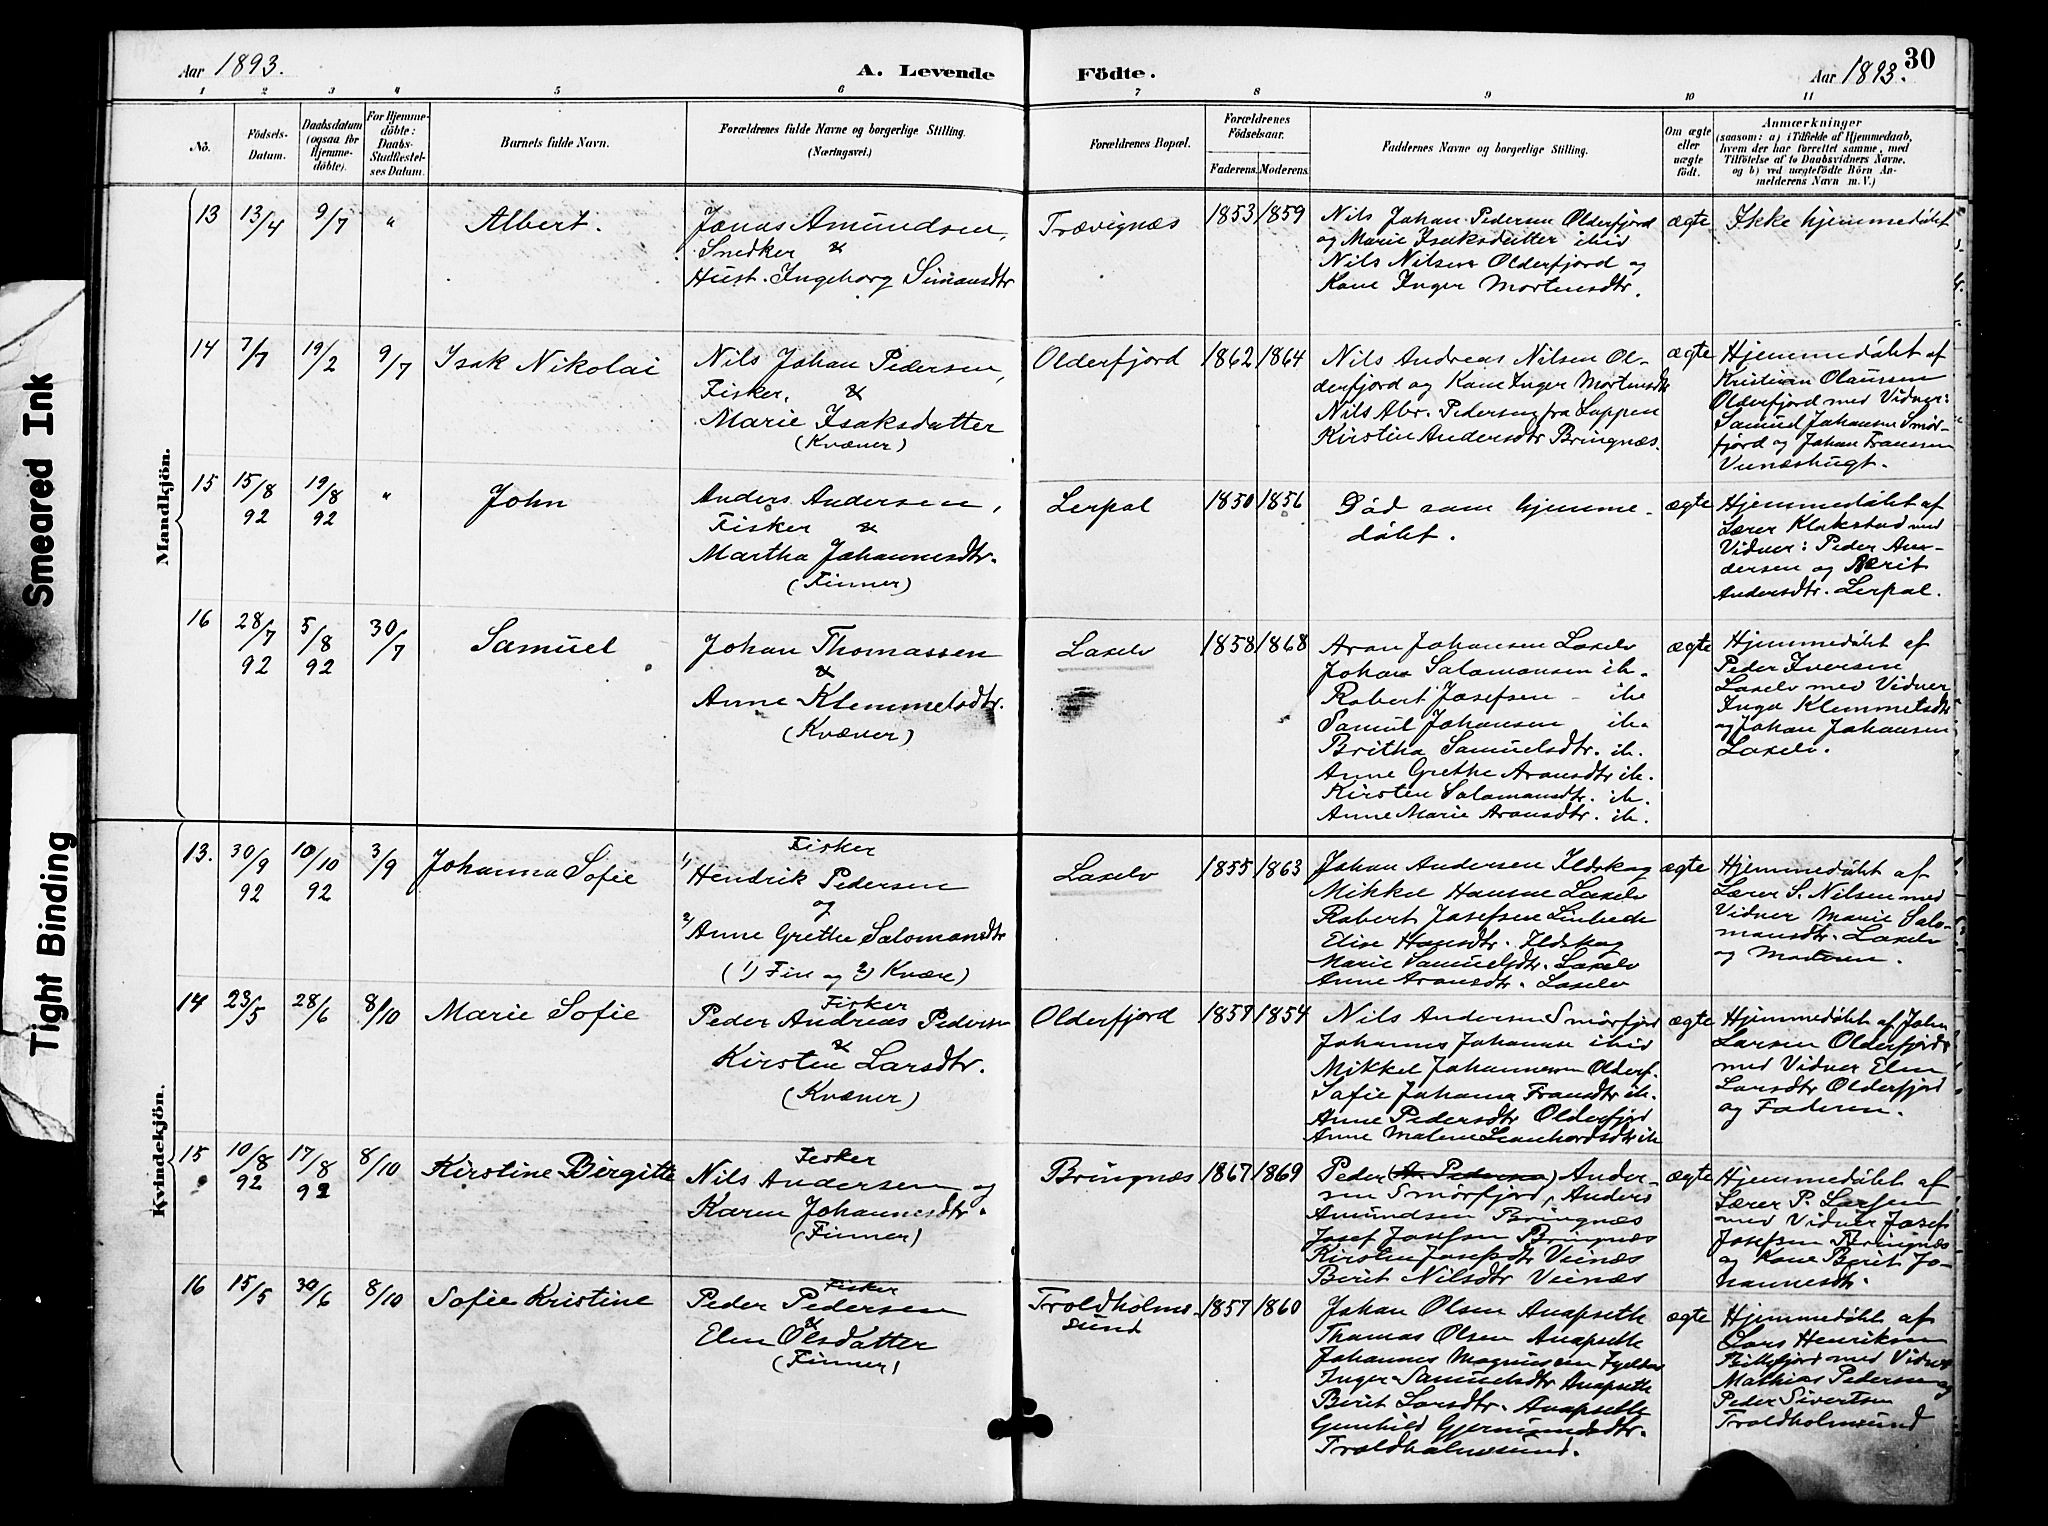 Aar 1893.
A. Levende
Födte.
Aar 1893.
30
1 2 3 4 5 6 7 8 9 10 11
No.
Födsels-
Datum.
Daabsdatum
(ogsaa for
Hjemme-
döbte).
For Hjemme-
döbte:
Daabs-
Stadfæstel-
ses Datum.
Barnets fulde Navn.
Forældrenes fulde Navne og borgerlige Stilling.
(Næringsvei.)
Forældrenes Bopæl.
Forældrenes
Födselsaar.
Faderens. Moderens.
Faddernes Navne og borgerlige Stilling.
Om ægte
eller
uægte
födt.
Anmærkninger
(saasom: a) i Tilfælde af Hjemmedaab,
hvem der har forrettet samme, med
Tilföielse af to Daabsvidners Navne,
og b) ved uægtefödte Börn An-
melderens Navn m. V.)
Mandkjön.
13 13/4 9/7 "
Albert.
Jonas Amundsen,
Snedker &
Hust. Ingeborg Simonsdtr
Trævignæs
1853 1859
Nils Johan Pedersen Olderfjord
og Marie Isaksdatter ibid
Nils Nilsen Olderfjord og
Kone Inger Mortensdtr.
ægte
Ikke hjemmedøbt
14 7/7 19/2 9/7
Isak Nikolai
Nils Johan Pedersen,
Fisker. &
Marie Isaksdatter
(Kvæner)
Olderfjord
1862 1864
Nils Andreas Nilsen Ol-
derfjord og Kone Inger Mortensdtr
Nils Abr. Pedersen fra Loppen
Kirstin Andersdtr Bringnæs.
ægte
Hjemmedøbt af
Kristian Olaussen
Olderfjord med Vidner:
Samuel Johansen Smør-
fjord og Johan Fransen
15 15/8 92 19/8 92 "
John
Anders Andersen,
Fisker &
Martha Johannesdtr.
(Finner)
Lerpol
1850 1856
Død som hjemme-
døbt.
ægte
Hjemmedøbt af
Lærer Klakstad med
Vidner: Peder An-
dersen og Berit
Andersdtr. Lerpol.
16 28/7 92 5/8 92 30/7
Samuel
Johan Thomassen
&
Anne Klemmetsdtr.
(Kvæner)
Laxelv
1858 1868
Aron Johansen Laxelv
Johan Salamonsen ib.
Robert Josefsen - ib.
Samul Johansen ib.
Britha Samuelsdtr. ib.
Anne Grethe Aronsdtr ib.
Kirsten Salamonsdtr. ib.
Anne Marie Aronsdtr. ib.
ægte
Hjemmedøbt af
Peder Iversen
Laxelv med Vidner
Inga Klemmetsdtr
og Johan Johansen
Laxelv.
Kvindekjön.
13. 30/9 92 10/10 92 3/9
Johanna Sofie
Fisker
1) Hendrik Pedersen
og
2) Anne Grethe Salomonsdtr
(1) Fin og 2) Kvæn)
Laxelv
1855 1863
Johan Andersen Ildskog
Mikkel Hansen Laxelv
Robert Josefsen
Elise Hansdtr. Ildskog
Marie Samuelsdtr. Laxelv
Anne Aronsdtr. Laxelv
ægte
Hjemmedøbt af
Lærer S. Nilsen med
Vidner Marie Salo-
monsdtr. Laxelv
og Moderen.
14 23/5 28/6 8/10
Marie Sofie
Fisker
Peder Andreas Pedersen
&
Kirsten Larsdtr.
(Kvæner)
Olderfjord
1857 1854
Nils Andersen Smørfjord
Johannes Johannsen ibid
Mikkel Johannesen Olderf.
Sofie Johanna Fransdtr ib.
Anne Pedersdtr Olderfjord
Anne Malene Leonhardsdtr ib
ægte
Hjemmedøbt af John
Larsen Olderfjord
med Vidner Elen
Larsdtr Olderfjord
og Faderen.
15 10/8 92 17/8 92 8/10
Kirstine Birgitte
Fisker
Nils Andersen og
Karen Johannesdtr.
(Finner)
Bringnæs
1867 1869
Peder (A. Pedersen) Ander-
sen Smørfjord, Anders
Amundsen Bringnæs
Josef Josefsen Bringnæs
Kirsten Josefsdtr Veinæs
Berit Nilsdtr Veinæs
ægte
Hjemmedøbt af
Lærer P. Larsen
med Vidner Josef
Josefsen Bringnæs
og Kone Berit Jo-
hannesdtr.
16 15/5 30/6 8/10
Sofie Kristine
Fisker
Peder Pedersen
&
Elen Olsdatter
(Finner)
Troldholms-
sund
1857 1860
Johan Olsen Anopseth
Thomas Olsen Anopseth
Johannes Magnussen
Inger Samuelsdtr Anopseth
Berit Larsdtr. Anopseth
Gunhild
Troldholmsund.
ægte
Hjemmedøbt af
Lars Henriksen
Billefjord med Vidner
Mathias Pedersen og
Peder Sivertsen
Troldholmsund
Smeared Ink
Tight Binding